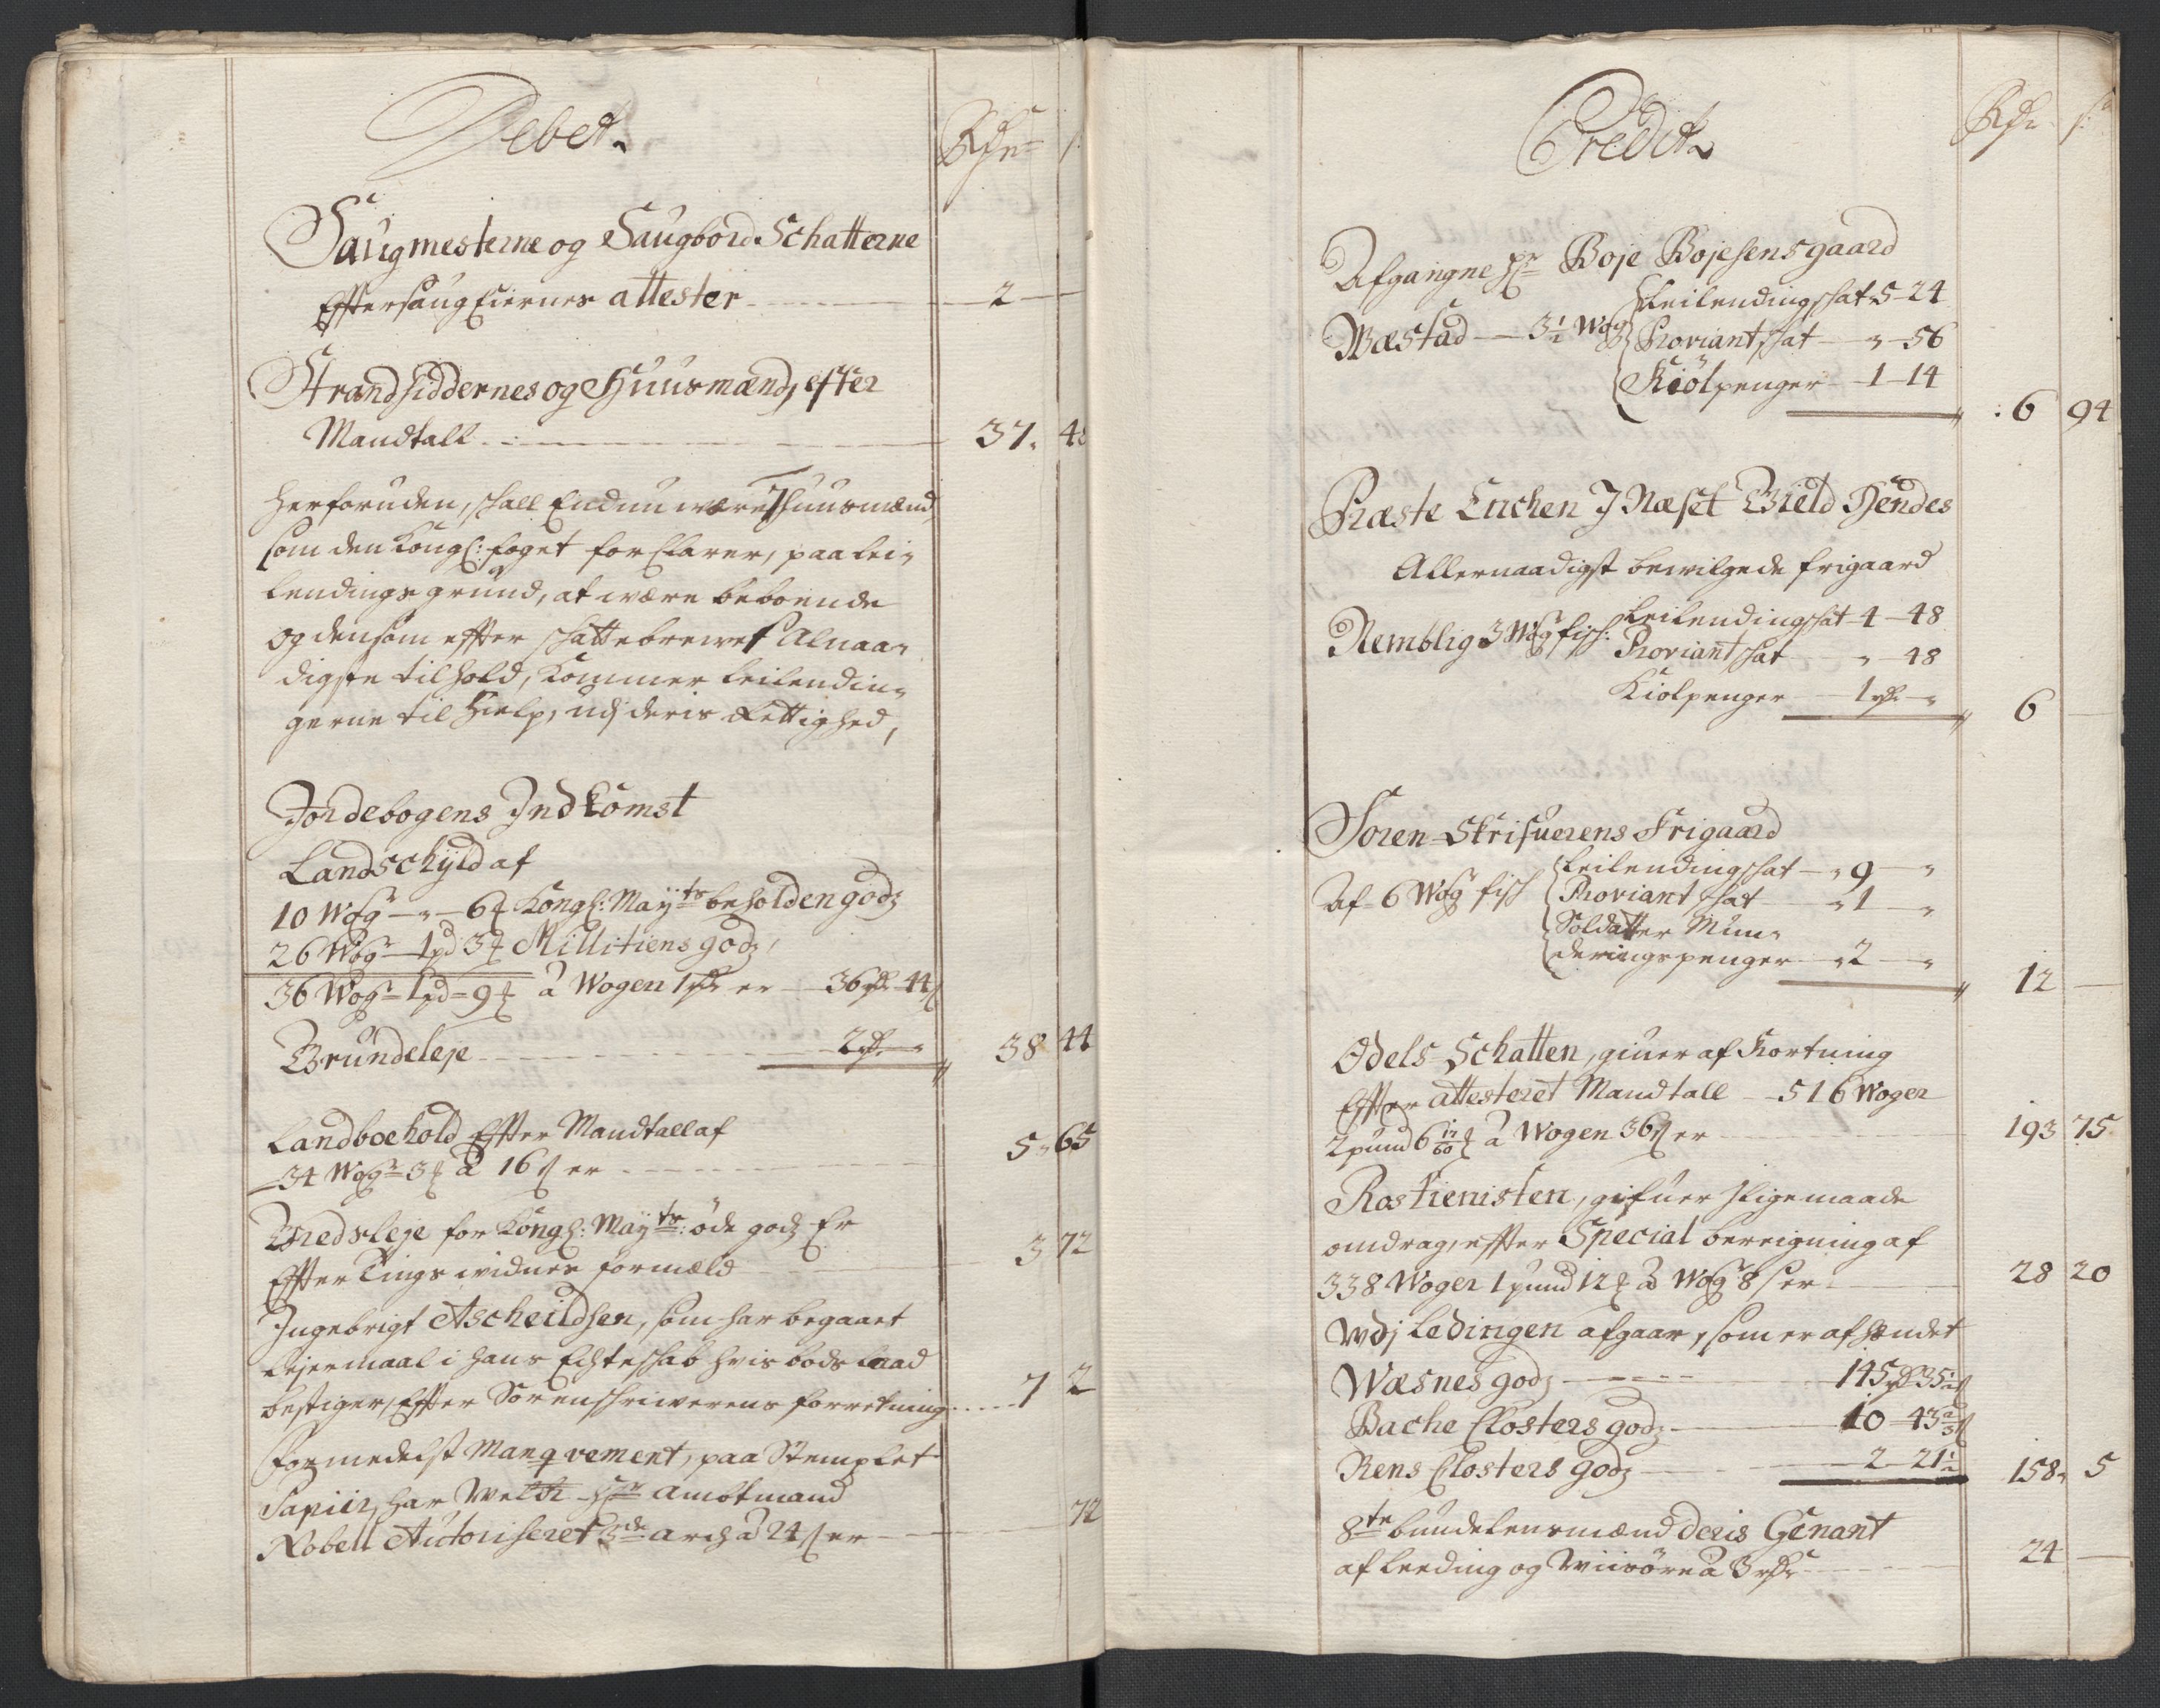 Debet
Rdr ß
Saugmesterne og Saugbord Schatterne
Effter saug Eiernes attester 2
Strandsiddernes og Huusmænds efter
Mandtall 37. 48
herforuden, skall Endnu være 7 huusmænd
som den Kongl: foget forklarer, paa lei-
lendings grund, at være beboende
og den som effter skattebrewet Alnaa-
digste tilhold, kommer leilendin-
gerne til hielp, udj deris Rettighed,
Jordebogens Indkomst
Landschyld af
10 Wogr - " - 6 # Kongl: Mayts beholden godz
26 Wogr - 1 pd 3 # Millitiens godz
36 Wogr - 1 pd - 9 # à Wogen 1 rdr er 36 rdr 44 ß
Grundeleje 2 rdr " 38 44
Landboehold Effter Mandtall af
34 Wogr 3 # à 16 ß er 5 " 65
Giedsleje for Kongl: Mayts: öde godz Er
Effter Tings widnes formæld 3 72
Ingebrigt Ascheildsen, som har begaaet
lejermaal i hans Echteskab hvis bodslaad
bestiger, Effter Sorenskriwerens forretning 7 2
Formedelst Manqvement, paa Stemplet
Papiir, har Welbr Hr Ambtmand
Nobell Autoriseret 3de arch à 24 ß er 72
Credit
Rdr ß
Afgangne Hr Boje Bojesens gaard
Wæstad 3 1/2 Wog Leilendingskat 5 - 24
Proviant skat " - 56
Kiölpenger 1 - 14
6 94
Præste Enchen J Næset Gield Hendes
Allernaadigst bewilgede frigaard
Nemblig 3 Wog fisk: Leilendingskat 4 - 48
Proviant skat " - 48
Kiolpenger 1 rdr "
6
Soren Skrifuerens Frigaard
Af 6 Wog fisk Leilendingskat " 9 "
Proviant skat " 1 "
Soldatter Mun-
deringspenger " 2 "
12
Odels Schatten, giuer af Kortning
Effter attesteret Mandtall 516 Woger
2 pund 6 17/60 # à Wogen 36 ß er 193 75
Rostienisten, gifuer ligemaade
omdrag, effter Special bereigning af
338 Woger 1 pund 12 # à Wog 8 ß er 28 20
Wdj Ledingen afgaar, som er afhendet
Wæsnes godz 145 rdr 35 1/2 ß
Bache Closters godz 10 - 43 2/3 ß
Rens Closters godz 2 - 21 1/2
158 " 5
8te bundelensmænd deris Genant
af Leeding og Wiisöre à 3 rdr 24